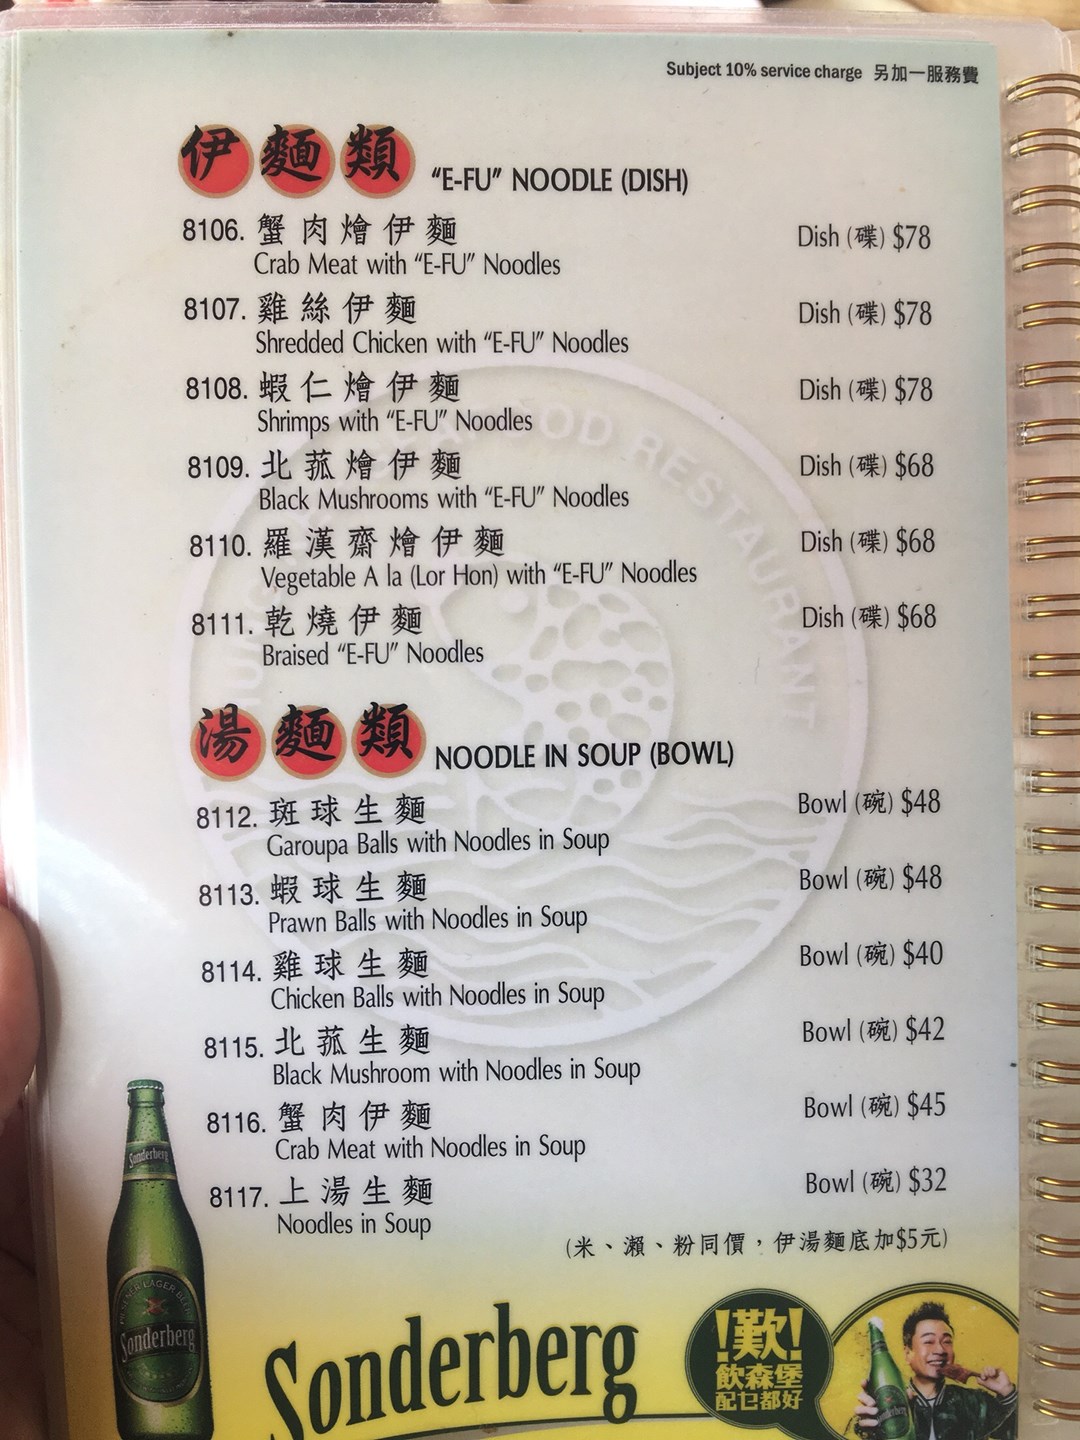 Subject 10% service charge 另加一服務費
伊麵類 “E-FU” NOODLE (DISH)
8106. 蟹肉燴伊麵 Dish (碟) $78
Crab Meat with “E-FU” Noodles
8107. 雞絲伊麵 Dish (碟) $78
Shredded Chicken with “E-FU” Noodles
8108. 蝦仁燴伊麵 Dish (碟) $78
Shrimps with “E-FU” Noodles
8109. 北菰燴伊麵 Dish (碟) $68
Black Mushrooms with “E-FU” Noodles
8110. 羅漢齋燴伊麵 Dish (碟) $68
Vegetable A la (Lor Hon) with “E-FU” Noodles
8111. 乾燒伊麵 Dish (碟) $68
Braised “E-FU” Noodles
湯麵類 NOODLE IN SOUP (BOWL)
8112. 斑球生麵 Bowl (碗) $48
Garoupa Balls with Noodles in Soup
8113. 蝦球生麵 Bowl (碗) $48
Prawn Balls with Noodles in Soup
8114. 雞球生麵 Bowl (碗) $40
Chicken Balls with Noodles in Soup
8115. 北菰生麵 Bowl (碗) $42
Black Mushroom with Noodles in Soup
8116. 蟹肉伊麵 Bowl (碗) $45
Crab Meat with Noodles in Soup
8117. 上湯生麵 Bowl (碗) $32
Noodles in Soup
(米、瀨、粉同價，伊湯麵底加$5元)
SEAFOOD RESTAURANT
Sonderberg
PILSNER LAGER BEER
Sonderberg
Sonderberg
!歎!
飲森堡
配乜都好
Sonderberg